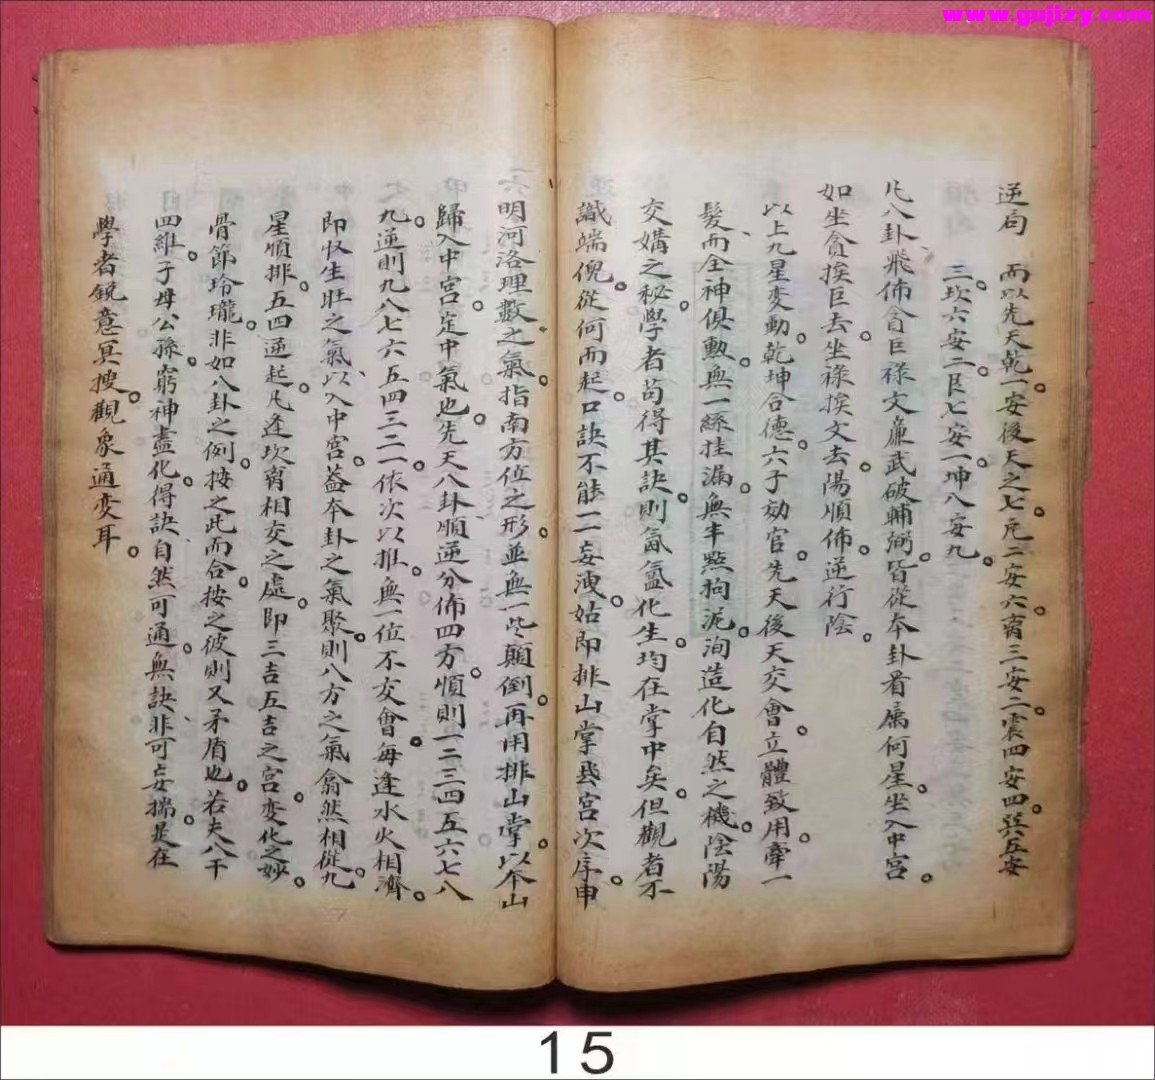 www.gujizy.com
逆局　而以先天乾一安後天之七。兌二安六。离三安二。震四安四。巽五安
三。坎六安二。艮七安一。坤八安九。
凡八卦飛佈貪巨祿文廉武破輔弼。皆從本卦看属何星。坐入中宮。
如坐貪挨巨去。坐祿挨文去。陽順佈。逆行陰。
以上九星变動。乾坤合德。六子効官。先天後天交會。立體致用。牽一
髮而全神俱勲。無一絲挂漏。無半點拘泥。洵造化自然之機。陰陽
交媾之秘。學者苟得其訣。則氤氳化生。均在掌中矣。但觀者不
識端倪。從何而起。口訣不能一二妄洩。姑即排山掌長宮次序。申
明河洛理數之氣。指南方位之形。並無一些顛倒。再用排山掌。以本山
歸入中宮。定中氣也。先天八卦。順逆分佈四方。順則一二三四五六七八
九。逆則九八七六五四三二一。依次以推。無一位不交會。每逢水火相濟。
即収生旺之氣。以入中宮。盖本卦之氣聚。則八方之氣翕然相從。九
星順排。五四逆起。凡逢坎离相交之處。即三吉五吉之宮。变化之妙。
骨節玲瓏。非如八卦之例。按之此而合。按之彼則又矛盾也。若夫八干
四維。子母公孫。窮神盡化。得訣自然可通。無訣非可妄揣。是在
學者銳意冥搜。觀象通变耳。
15